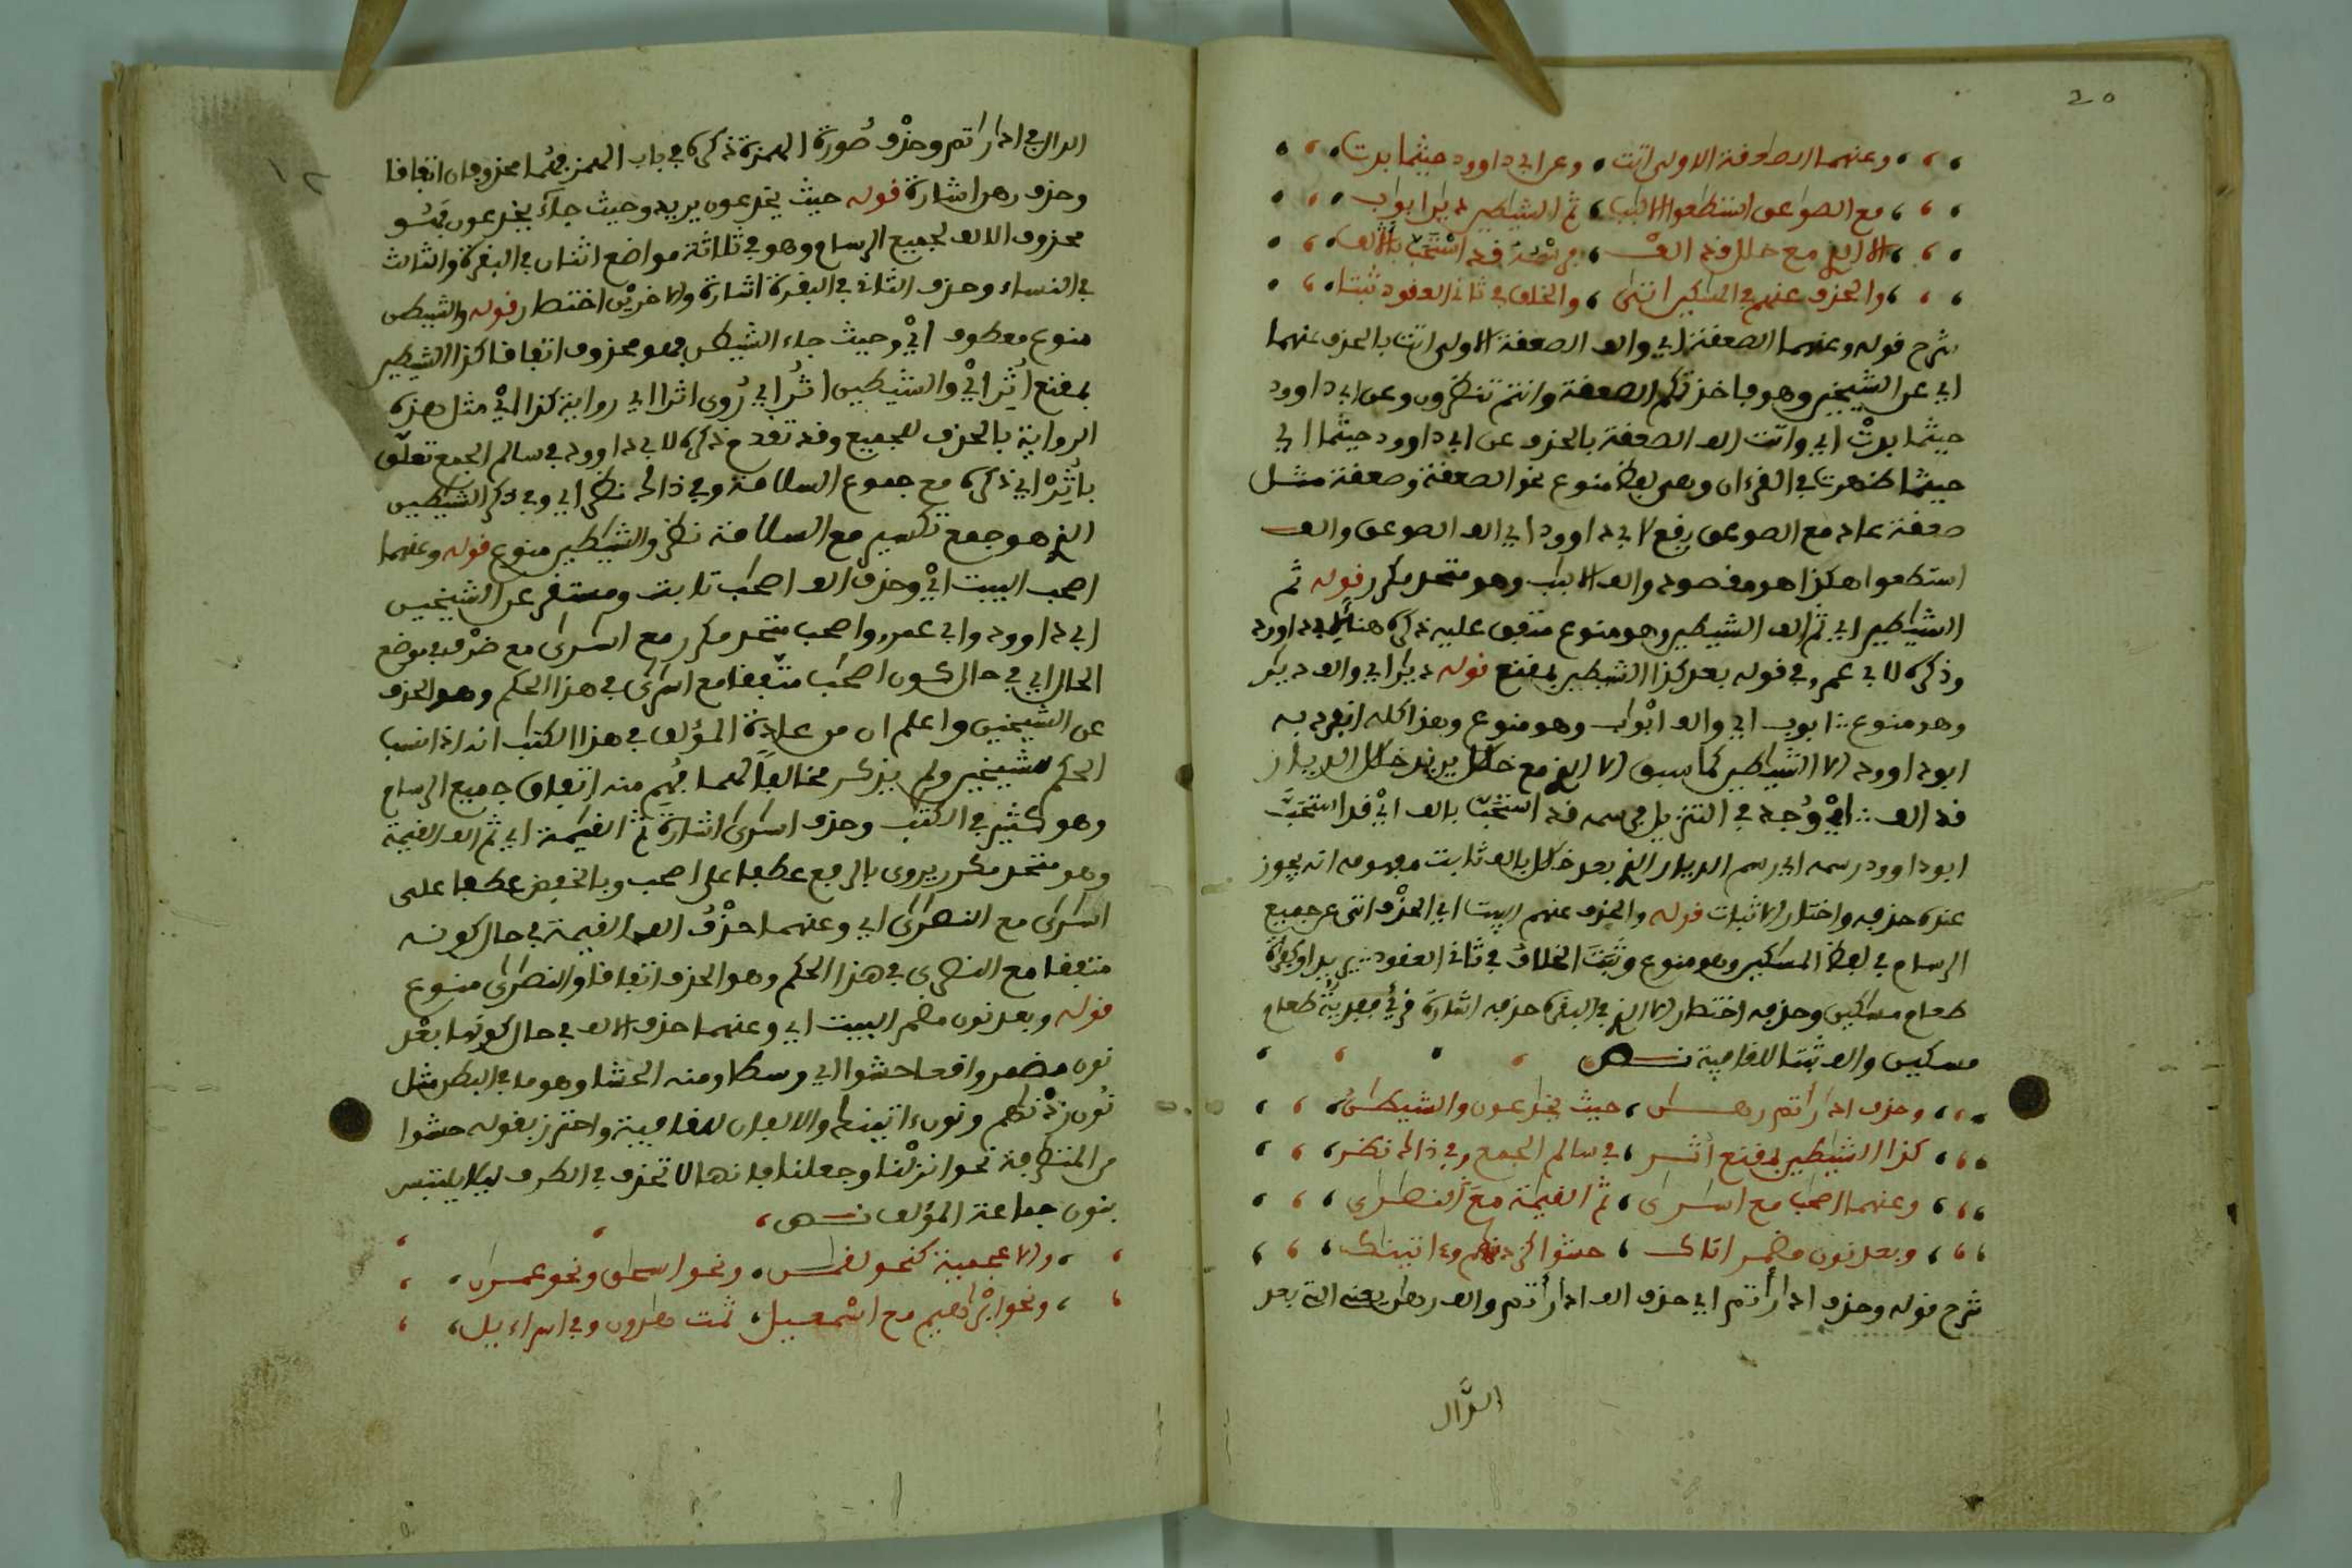 20
وعنهما الصعقة الاولى اتت وعن ابي داوود حيثما بدت
مع الصواعق استطعوا الالبب ثم الشيطين ديرابواب
الا الذي مع خلل قد الف فرسمه قد استحب بالالف
والحذف عنهم في المسكين اتى والخلف في ثاني العقود ثبتا
شرح قوله وعنهما الصعقة اي والف الصعقة الاولى اتت بالحذف عنهما
اي عن الشيخين وهو فاخذتكم الصعقة وانتم تنظرون وعن ابي داوود
حيثما بدت اي واتت الف الصعقة بالحذف عن ابي داوود حيثما اي
حيثما ظهرت في القرءان وهي لفظ منوع نحو الصعقة وصعقة مثل
صعقة عاد مع الصوعق رفع لابي داوود اي الف الصوعق والف
استطعوا هكذا هو مقصوده والف الالبب وهو متحد مكرر قوله ثم
الشيطين اي ثم الف الشيطين وهو منوع متفق عليه ذكره هنا لابي داوود
وذكره لابي عمرو في قوله بعد كذا الشيطين بمقنع قوله ديرا اي والف ديار
وهو منوع ابوب اي والف ابواب وهو منوع وهذا كله انفرد به
ابو داوود الا الشيطين كما سبق الا الذي مع خلل يريد خلل الديار
قد الف اي وجد في التنزيل فرسمه قد استحب بالف اي قد استحب
ابو داوود رسمه اي رسم الديار الذي بعد خلل بالف ثابت مفهومه انه يجوز
عنده حذفه واختار الاثبات قوله والحذف عنهم البيت اي الحذف اتى عن جميع
الرسام في لفظ المسكين وهو منوع وثبت الخلاف في ثاني العقود يريد او كفرة
طعام مسكين وحذفه اختصار الا الذي في البقرة حذفه اشارة قرئ فدية طعام
مسكين والف ثبتا للقافية نص
وحذف ادارأتم رهن حيث يخدعون والشيطن
كذا الشيطين بمقنع اثر في سالم الجمع وفي ذاك نظر
وعنهما اصحب مع اسرى ثم القيمة مع النصرى
وبعد نون مضمر اتاك حشوا كزدنهم وءاتينك
شرح قوله وحذف ادارأتم اي حذف الف ادارأتم والف رهن يعني التي بعد
الدال
الدال في ادارأتم وحذف صورة الهمزة ذكره في باب الهمز فهما محذوفان اتفاقا
وحذف رهن اشارة قوله حيث يخدعون يريد وحيث جاء يخدعون فهو
محذوف الالف لجميع الرسام وهو في ثلاثة مواضع اثنان في البقرة والثالث
في النساء وحذف الثاني في البقرة اشارة والاخرين اختصار قوله والشيطن
منوع معطوف اي وحيث جاء الشيطن فهو محذوف اتفاقا كذا الشيطين
بمقنع اثر اي والشيطين اثر اي روى اثرا اي رواية كذا اي مثل هذه
الرواية بالحذف للجميع وقد تقدم ذكره لابي داوود في سالم الجمع تعلق
باثر اي ذكره مع جموع السلامة وفي ذاك نظر اي وفي ذكر الشيطين
الذي هو جمع تكسير مع السلامة نظر والشيطين منوع قوله وعنهما
اصحب البيت اي وحذف الف اصحب ثابت ومستقر عن الشيخين
ابي داوود وابي عمرو واصحب متحد مكرر مع اسرى مع ظرف في موضع
الحال اي في حال كون اصحب متفقا مع اسرى في هذا الحكم وهو الحذف
عن الشيخين واعلم ان من عادة المؤلف في هذا الكتب انه اذا نسب
الحكم للشيخين ولم يذكر مخالفا لهما فهم منه اتفاق جميع الرسام
وهو كثير في الكتب وحذف اسرى اشارة ثم القيمة اي ثم الف القيمة
وهو متحد مكرر يروى بالرفع عطفا على اصحب وبالخفض عطفا على
اسرى مع النصرى اي وعنهما حذف الف القيمة في حال كونه
متفقا مع النصرى في هذا الحكم وهو الحذف اتفاقا والنصرى منوع
قوله وبعد نون مضمر البيت اي وعنهما حذف الالف في حال كونها بعد
نون مضمر واقعا حشوا اي وسطا ومنه الحشا وهو ما في البطن مثل
نون زدنهم ونون ءاتينك والالفان للقافية واحترز بقوله حشوا
من المتطرفة نحو انزلنا وجعلنا فانها لا تحذف في الطرف ليلا يلتبس
بنون جماعة المؤلف نص
والاعجمية كنحو لقمن ونحو اسحق ونحو عمرن
ونحو ابرهيم مع اسمعيل ثمت هرون وفي اسراءيل